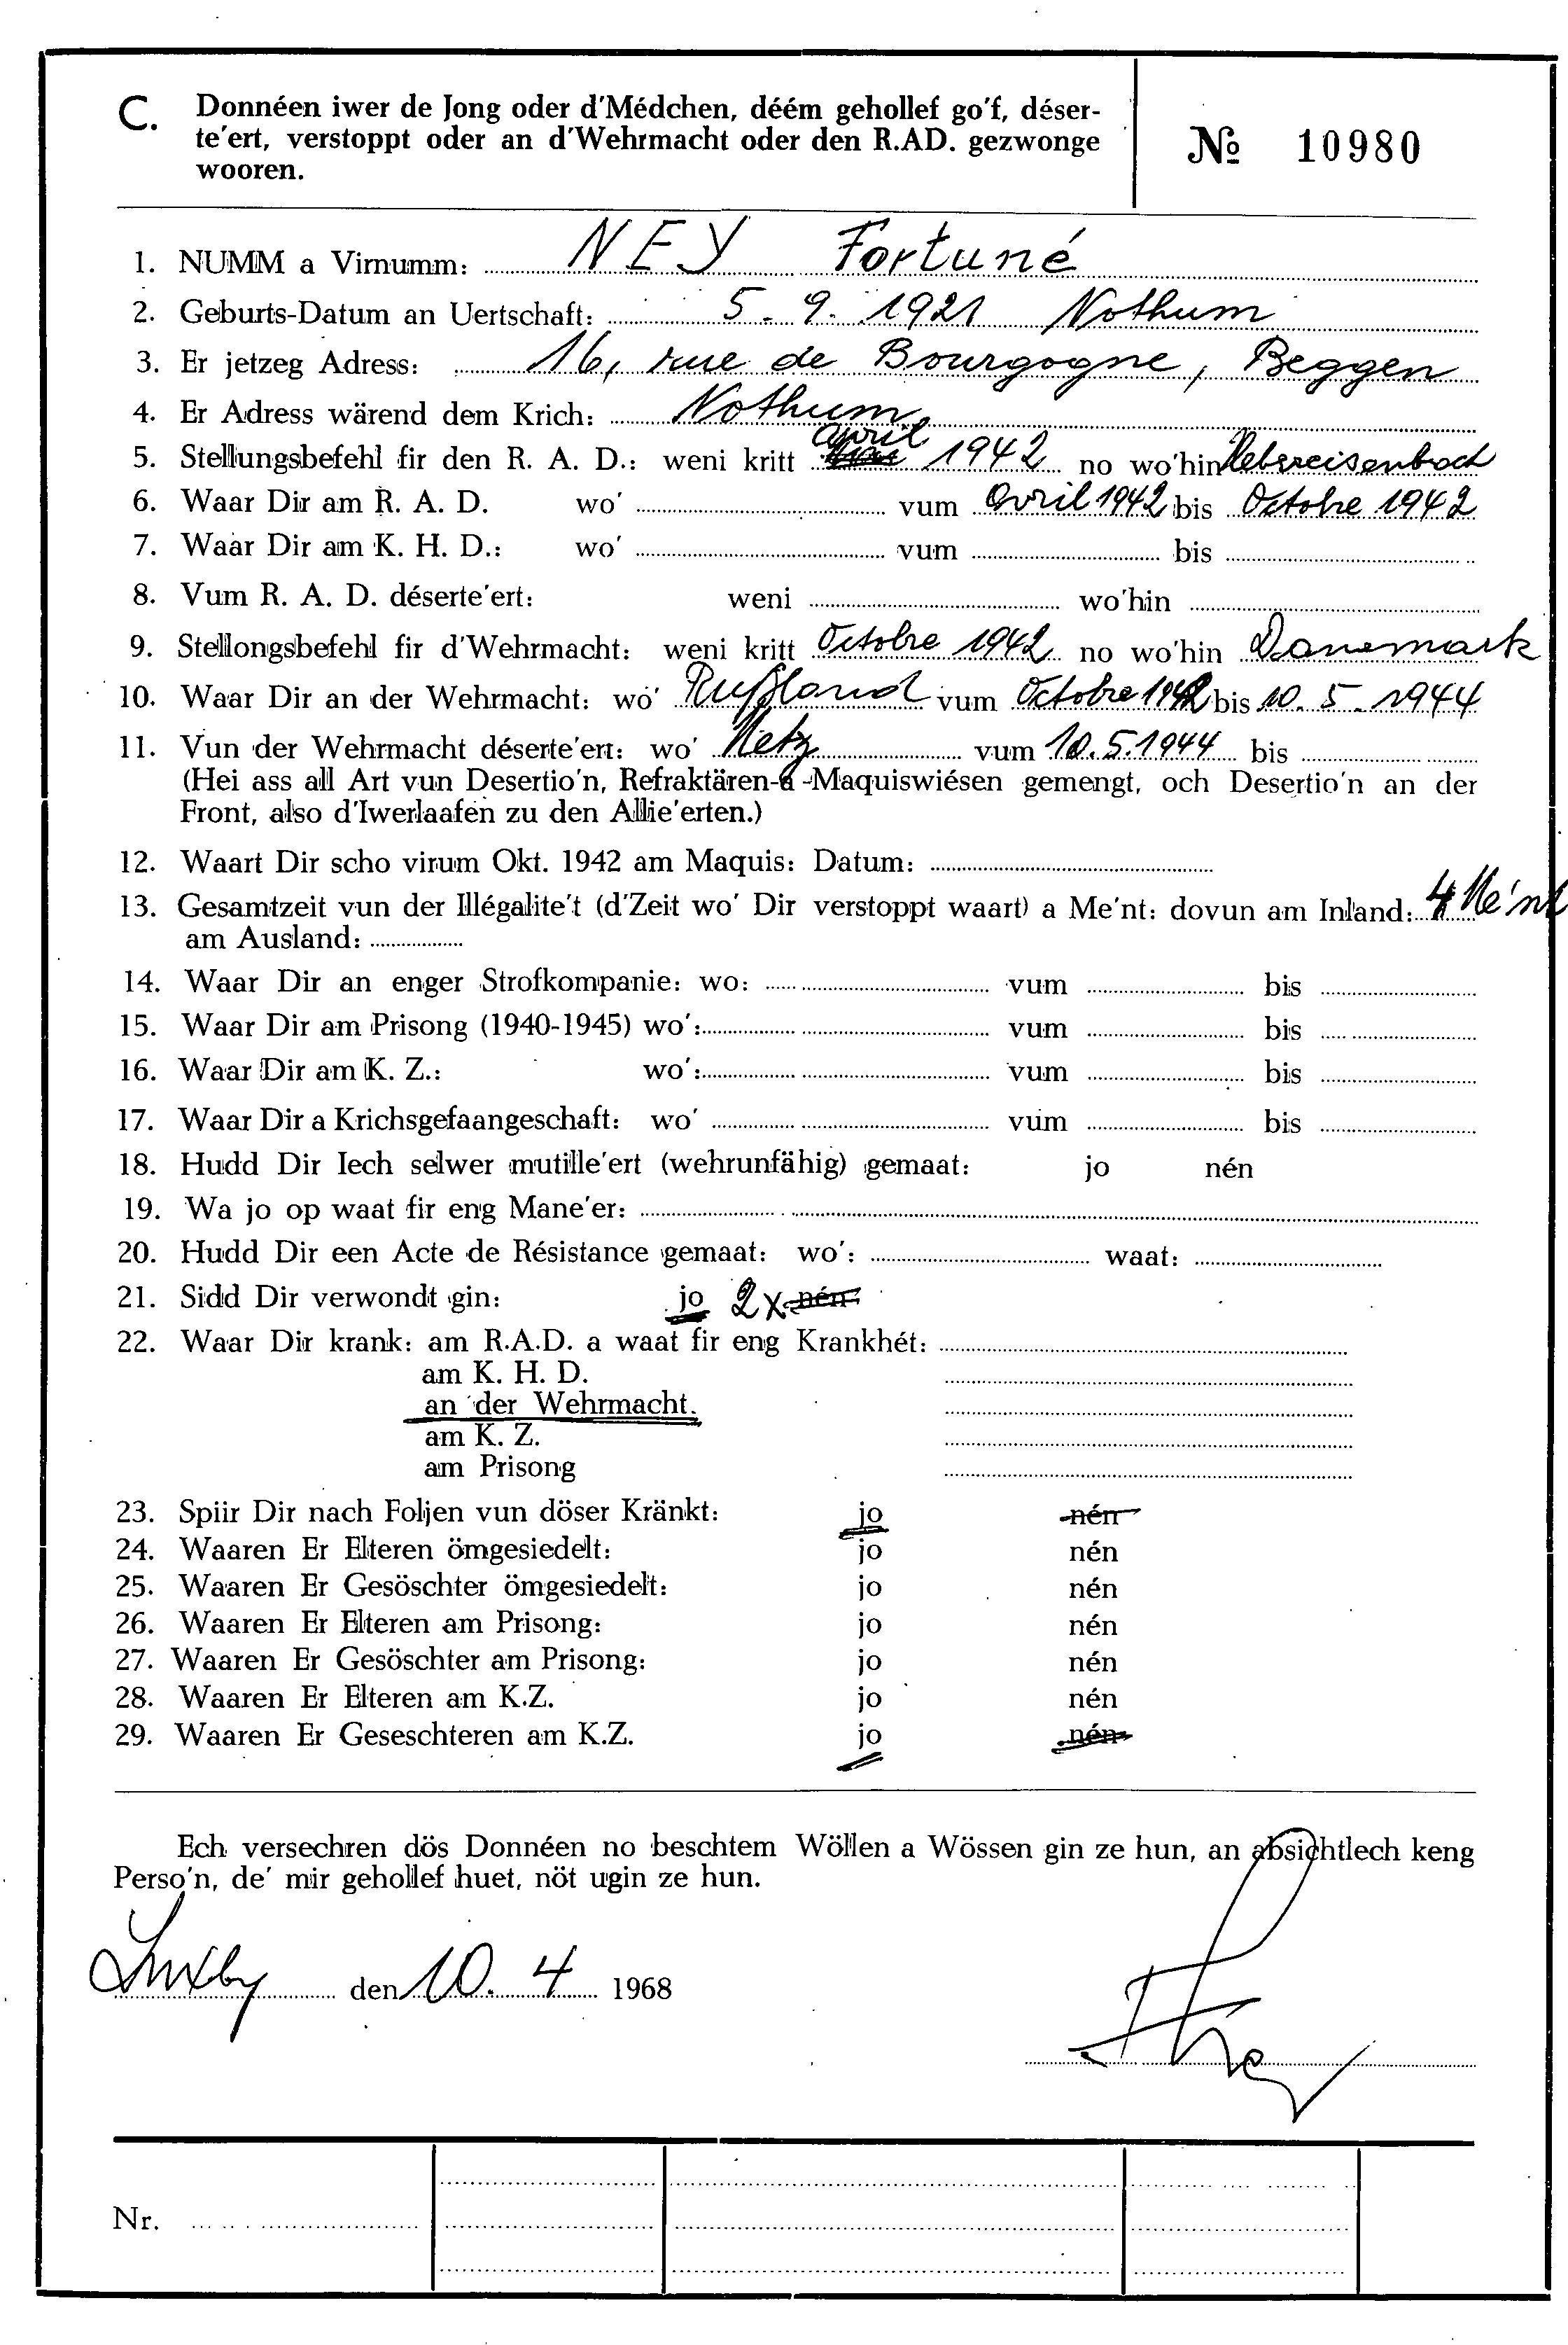 C. Donnéen iwer de Jong oder d'Médchen, déém gehollef go'f, déser-
te'ert, verstoppt oder an d'Wehrmacht oder den R.AD. gezwonge
wooren.
№ 10980
1. NUMM a Virnumm: NEY Fortuné
2. Geburts-Datum an Uertschaft: 5. 9. 1921 Nothum
3. Er jetzeg Adress: 16, rue de Bourgogne, Beggen
4. Er Adress wärend dem Krich: Nothum
5. Stellungsbefehl fir den R. A. D.: weni kritt april 1942 no wo'hin Uebereisenbach
6. Waar Dir am R. A. D. wo' vum Avril 1942 bis Octobre 1942
7. Waar Dir am K. H. D.: wo' vum bis
8. Vum R. A. D. déserte'ert: weni wo'hin
9. Stellongsbefehl fir d'Wehrmacht: weni kritt Octobre 1942 no wo'hin Danemark
10. Waar Dir an der Wehrmacht: wo' Rußland vum Octobre 1942 bis 10. 5. 1944
11. Vun der Wehrmacht déserte'ert: wo' Metz vum 10.5.1944 bis
(Hei ass all Art vun Desertio'n, Refraktären-a -Maquiswiésen gemengt, och Desertio'n an der
Front, also d'Iwerlaafen zu den Allie'erten.)
12. Waart Dir scho virum Okt. 1942 am Maquis: Datum:
13. Gesamtzeit vun der Illégalite't (d'Zeit wo' Dir verstoppt waart) a Me'nt: dovun am Inland: 4 Mé'nt
am Ausland:
14. Waar Dir an enger Strofkompanie: wo: vum bis
15. Waar Dir am Prisong (1940-1945) wo': vum bis
16. Waar Dir am K. Z.: wo': vum bis
17. Waar Dir a Krichsgefaangeschaft: wo' vum bis
18. Hudd Dir Iech selwer mutille'ert (wehrunfähig) gemaat: jo nén
19. Wa jo op waat fir eng Mane'er:
20. Hudd Dir een Acte de Résistance gemaat: wo': waat:
21. Sidd Dir verwondt gin: jo 2x nén
22. Waar Dir krank: am R.A.D. a waat fir eng Krankhét:
am K. H. D.
an der Wehrmacht.
am K. Z.
am Prisong
23. Spiir Dir nach Foljen vun döser Kränkt: jo nén
24. Waaren Er Elteren ömgesiedelt: jo nén
25. Waaren Er Gesöschter ömgesiedelt: jo nén
26. Waaren Er Elteren am Prisong: jo nén
27. Waaren Er Gesöschter am Prisong: jo nén
28. Waaren Er Elteren am K.Z. jo nén
29. Waaren Er Geseschteren am K.Z. jo nén
Ech versechren dös Donnéen no beschtem Wöllen a Wössen gin ze hun, an absichtlech keng
Perso'n, de' mir gehollef huet, nöt ugin ze hun.
Luxbg den 10. 4 1968
Nr.